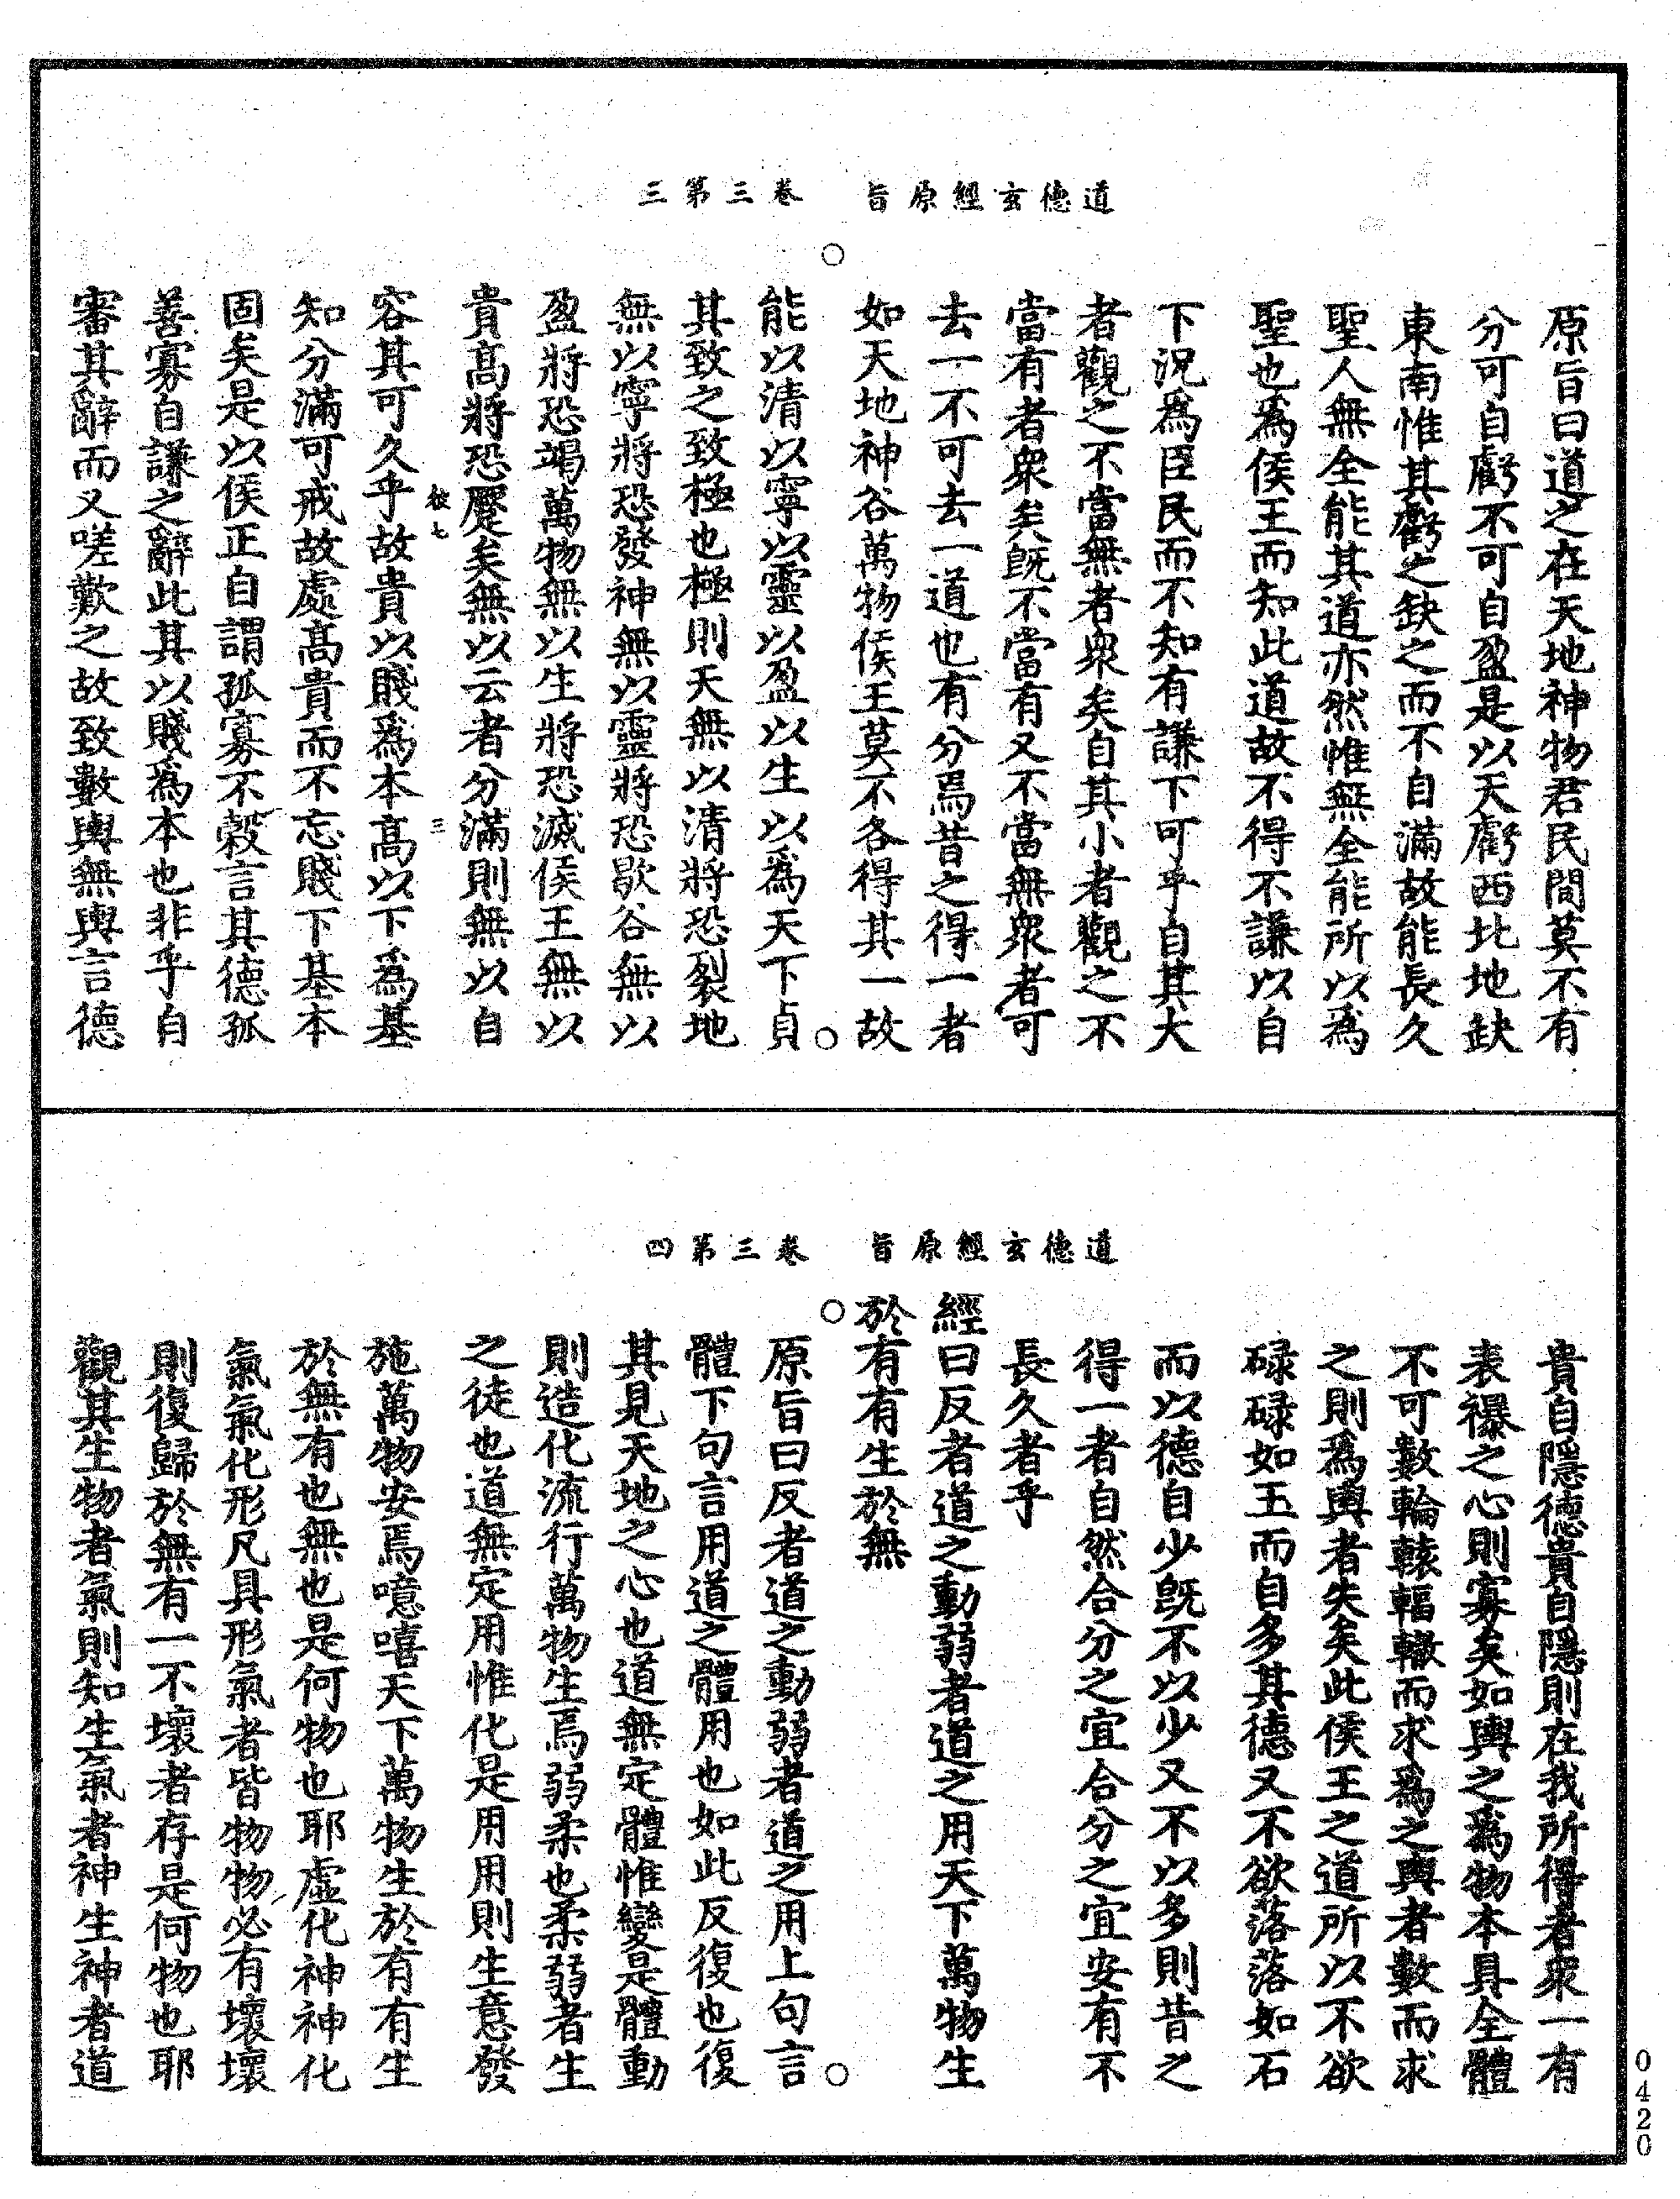 道德玄經原旨　卷三第三
原旨曰道之在天地神物君民間莫不有
分可自虧不可自盈是以天虧西北地缺
東南惟其虧之缺之而不自滿故能長久
聖人無全能其道亦然惟無全能所以為
聖也為侯王而知此道故不得不謙以自
下況為臣民而不知有謙下可乎自其大
者觀之不當無者衆矣自其小者觀之不
當有者衆矣旣不當有又不當無衆者可
去一不可去一道也有分焉昔之得一者
如天地神谷萬物侯王莫不各得其一故
能以清以寧以靈以盈以生以為天下貞
其致之致極也極則天無以清將恐裂地
無以寧將恐發神無以靈將恐歇谷無以
盈將恐竭萬物無以生將恐滅侯王無以
貴高將恐蹷矣無以云者分滿則無以自
彼七　三
容其可久乎故貴以賤為本高以下為基
知分滿可戒故處高貴而不忘賤下基本
固矣是以侯正自謂孤寡不穀言其德孤
善寡自謙之辭此其以賤為本也非乎自
審其辭而又嗟歎之故致數輿無輿言德
道德玄經原旨　卷三第四
貴自隱德貴自隱則在我所得者衆一有
表襮之心則寡矣如輿之為物本具全體
不可數輪轅輻轍而求為之輿者數而求
之則為輿者失矣此侯王之道所以不欲
碌碌如玉而自多其德又不欲落落如石
而以德自少旣不以少又不以多則昔之
得一者自然合分之宜合分之宜安有不
長久者乎
經曰反者道之動弱者道之用天下萬物生
於有有生於無
原旨曰反者道之動弱者道之用上句言
體下句言用道之體用也如此反復也復
其見天地之心也道無定體惟變是體動
則造化流行萬物生焉弱柔也柔弱者生
之徒也道無定用惟化是用用則生意發
施萬物安焉噫嘻天下萬物生於有有生
於無有也無也是何物也耶虛化神神化
氣氣化形凡具形氣者皆物物必有壞壞
則復歸於無有一不壞者存是何物也耶
觀其生物者氣則知生氣者神生神者道
0420